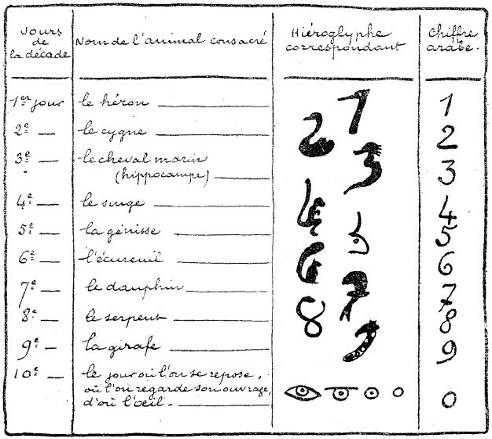 Jours de la décade
Nom de l'animal consacré
Hiéroglyphe correspondant
Chiffre arabe.
1er jour le héron 1
2e — le cygne 2
3e — le cheval marin (hippocampe) 3
4e — le singe 4
5e — la génisse 5
6e — l'écureuil 6
7e — le dauphin 7
8e — le serpent 8
9e — la girafe 9
10e — le jour où l'on se repose,
où l'on regarde son ouvrage,
d'où l'œil. 0